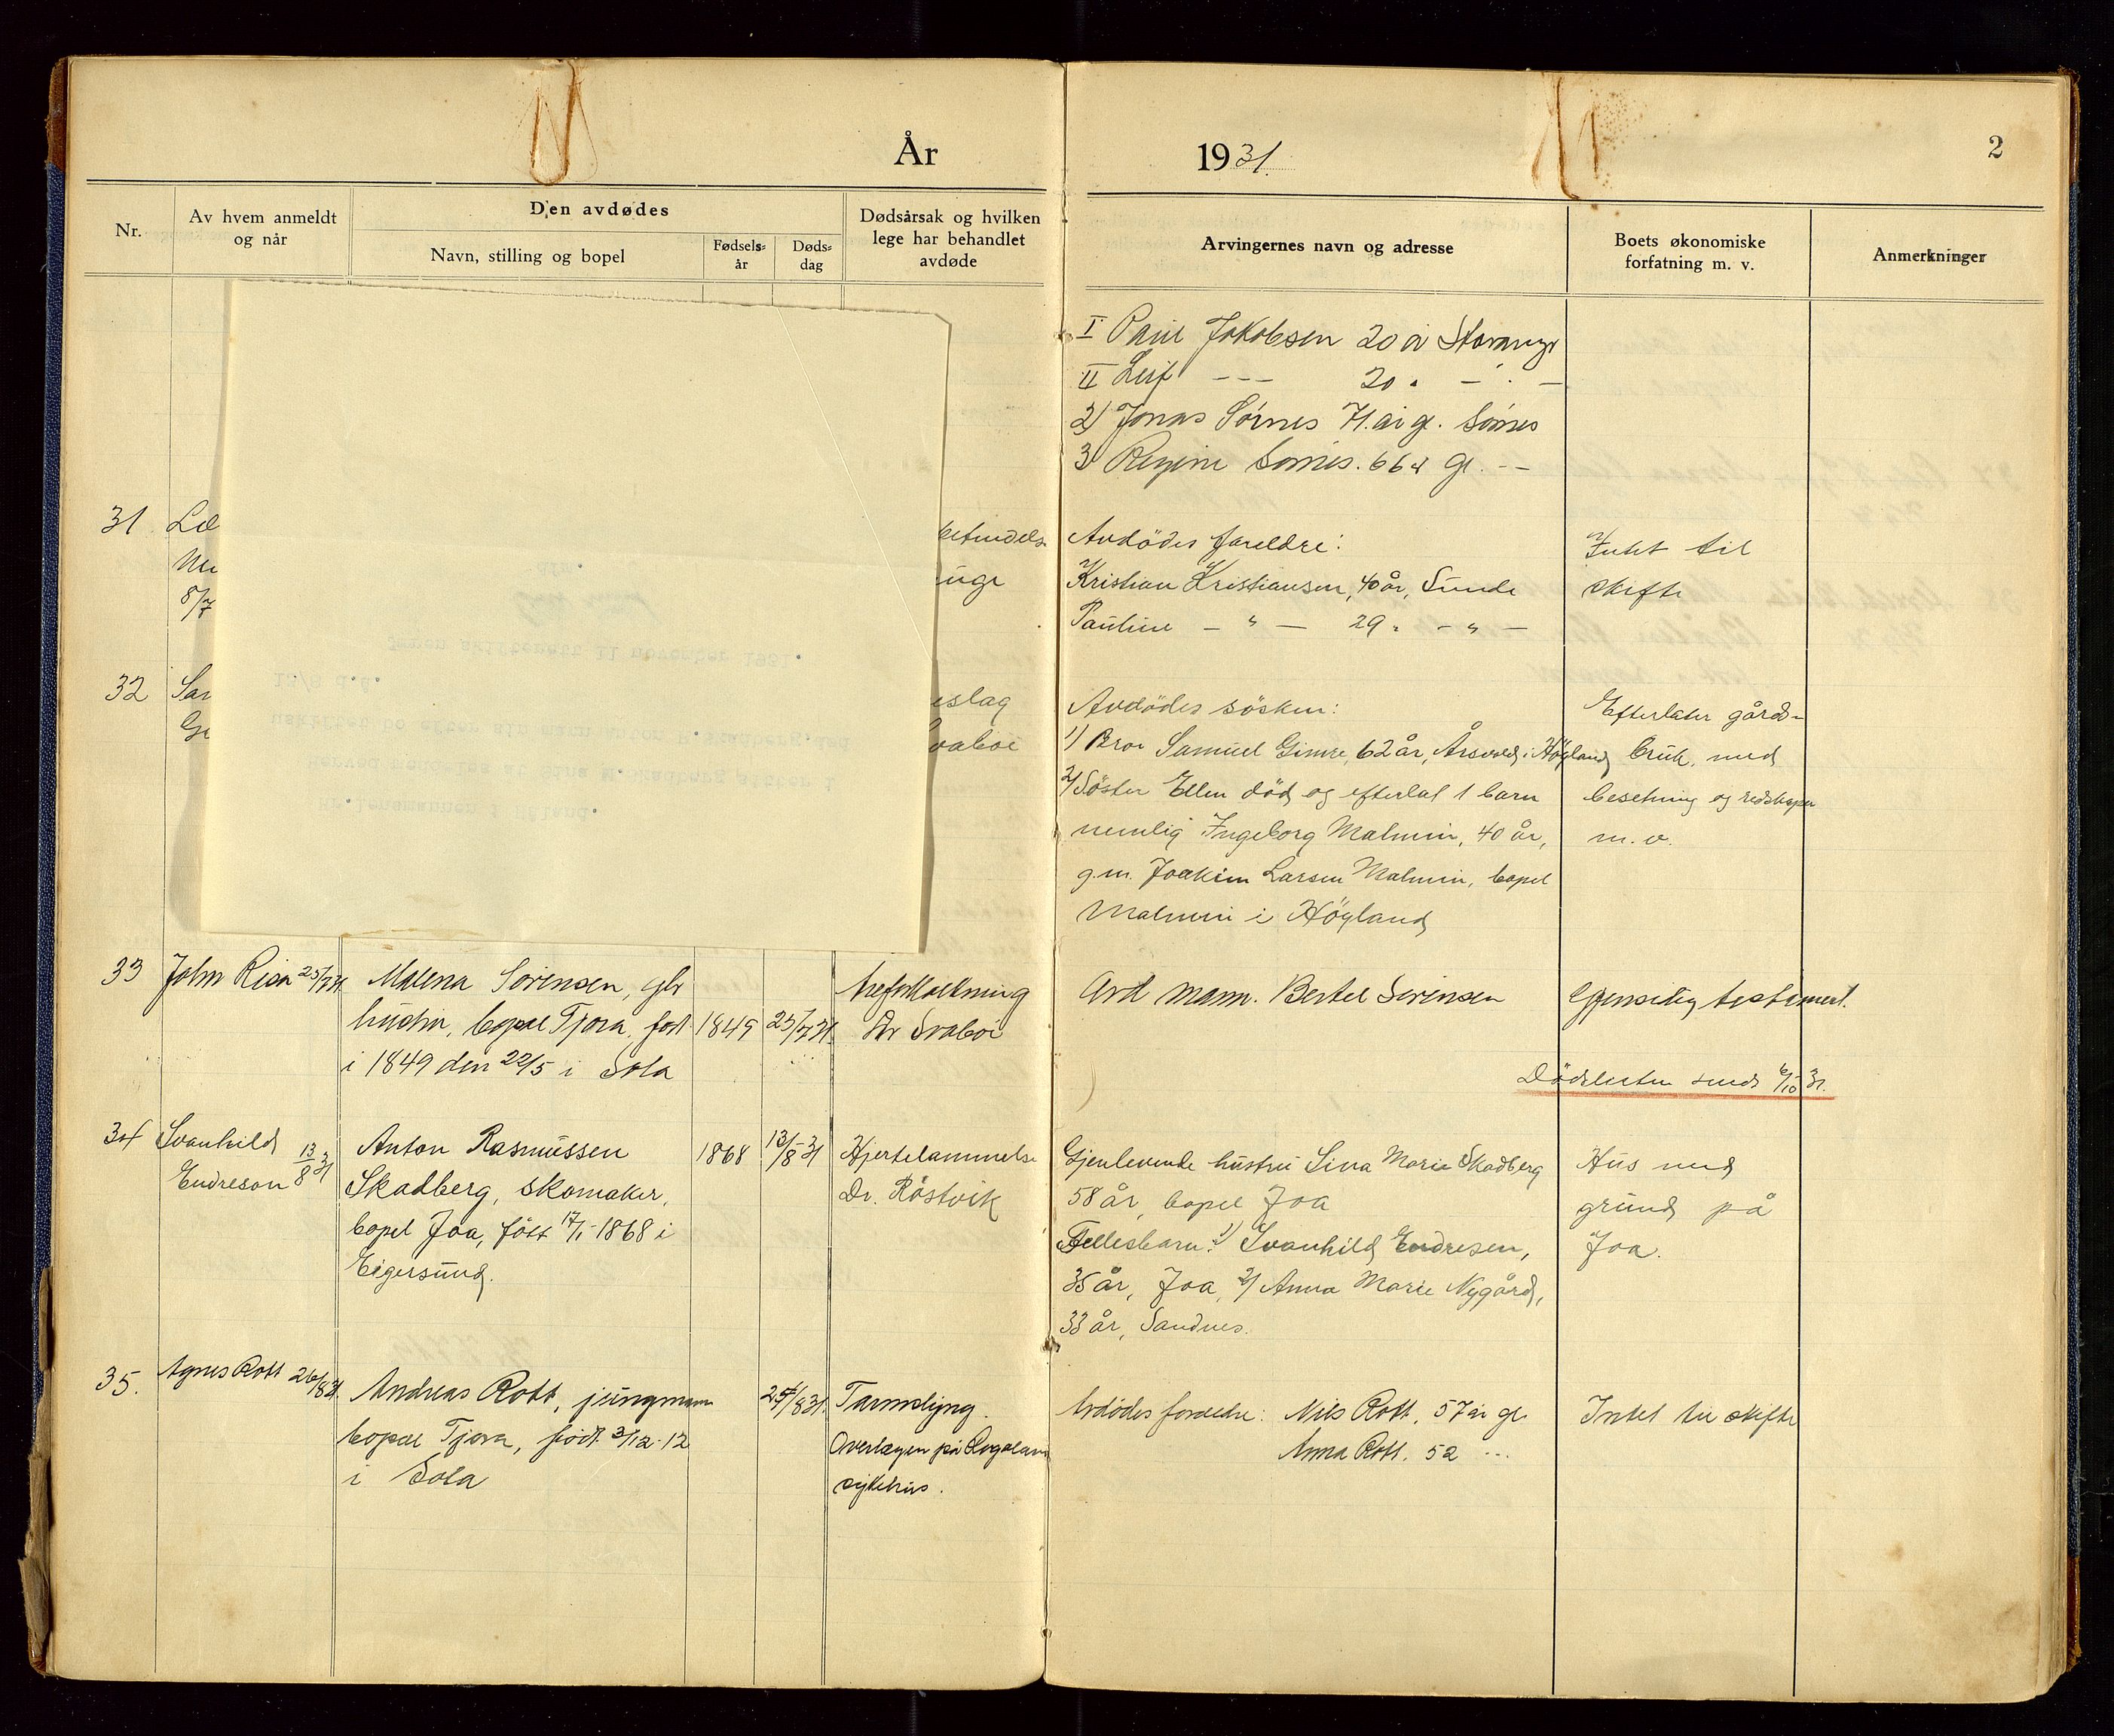 År
1931.
2
Nr.
Av hvem anmeldt
og når
Den avdødes
Navn, stilling og bopel
Fødsels=
år
Døds=
dag
Dødsårsak og hvilken
lege har behandlet
avdøde
Arvingernes navn og adresse
Boets økonomiske
forfatning m. v.
Anmerkninger
I Paul Jakobsen 20 år Stavanger
II Leif - - - 20 . - . -
2) Jonas Sörnes 71. år g. Sörnes
3) Regine Sörnes. 66 å gl. - -
31
8/7
Avdödes foreldre:
Kristian Kristiansen, 40 år, Sunde
Pauline - " - 29 " - " -
Intet til
skifte
32
Avdödes sösken:
1) Bror Samuel Gimre, 62 år, Årsvold i Höyland
2) Söster Ellen död og efterlat 1 barn
nemlig Ingeborg Malmin, 40 år,
g.m. Joakim Larsen Malmin, bopel
Malmin i Höyland
Efterlater gårds-
bruk, med
besetning og redskaper
m.v.
Hr.lensmannen i Håland.
Herved meddeles at Sina M.Skadberg sitter i
uskiftet bo efter sin mann Anton R.Skadberg,død
13/8 d.å.
Jæren skifterett 11 november 1931.
33 John Risa 25/7 31
Malena Sörensen, glr
hustru, bopel Tjora, født
i 1849 den 22/5 i Sola
1849
25/7 31.
Åreforkalkning
Dr Svaboe
Arv. mann. Bertel Sörensen
Gjensidig testament.
Dödslisten sendt 6/10 31.
34 Svanhild
Endresen 13/8 31
Anton Rasmussen
Skadberg, skomaker,
bopel Joa, fött 17/1-1868 i
Eigersund.
1868
13/8-31
Hjertelammelse
Dr. Röstvik
Gjenlevende hustru Sina Marie Skadberg
58 år, bopel Joa
Fellesbarn: 1) Svanhild Endresen,
35 år, Joa, 2) Anna Marie Nygård,
33 år, Sandnes.
Hus med
grund på
Joa.
35. Agnes Rott 26/8 31.
Andreas Rott, jungmann
bopel Tjora, född 3/12-12
i Sola
/8 31.
Tarmslyng.
Overlægen på Rogaland
sykehus.
Avdödes foreldre: Nils Rott, 57 år gl.
Anna Rott, 52 ---
Intet til skifte